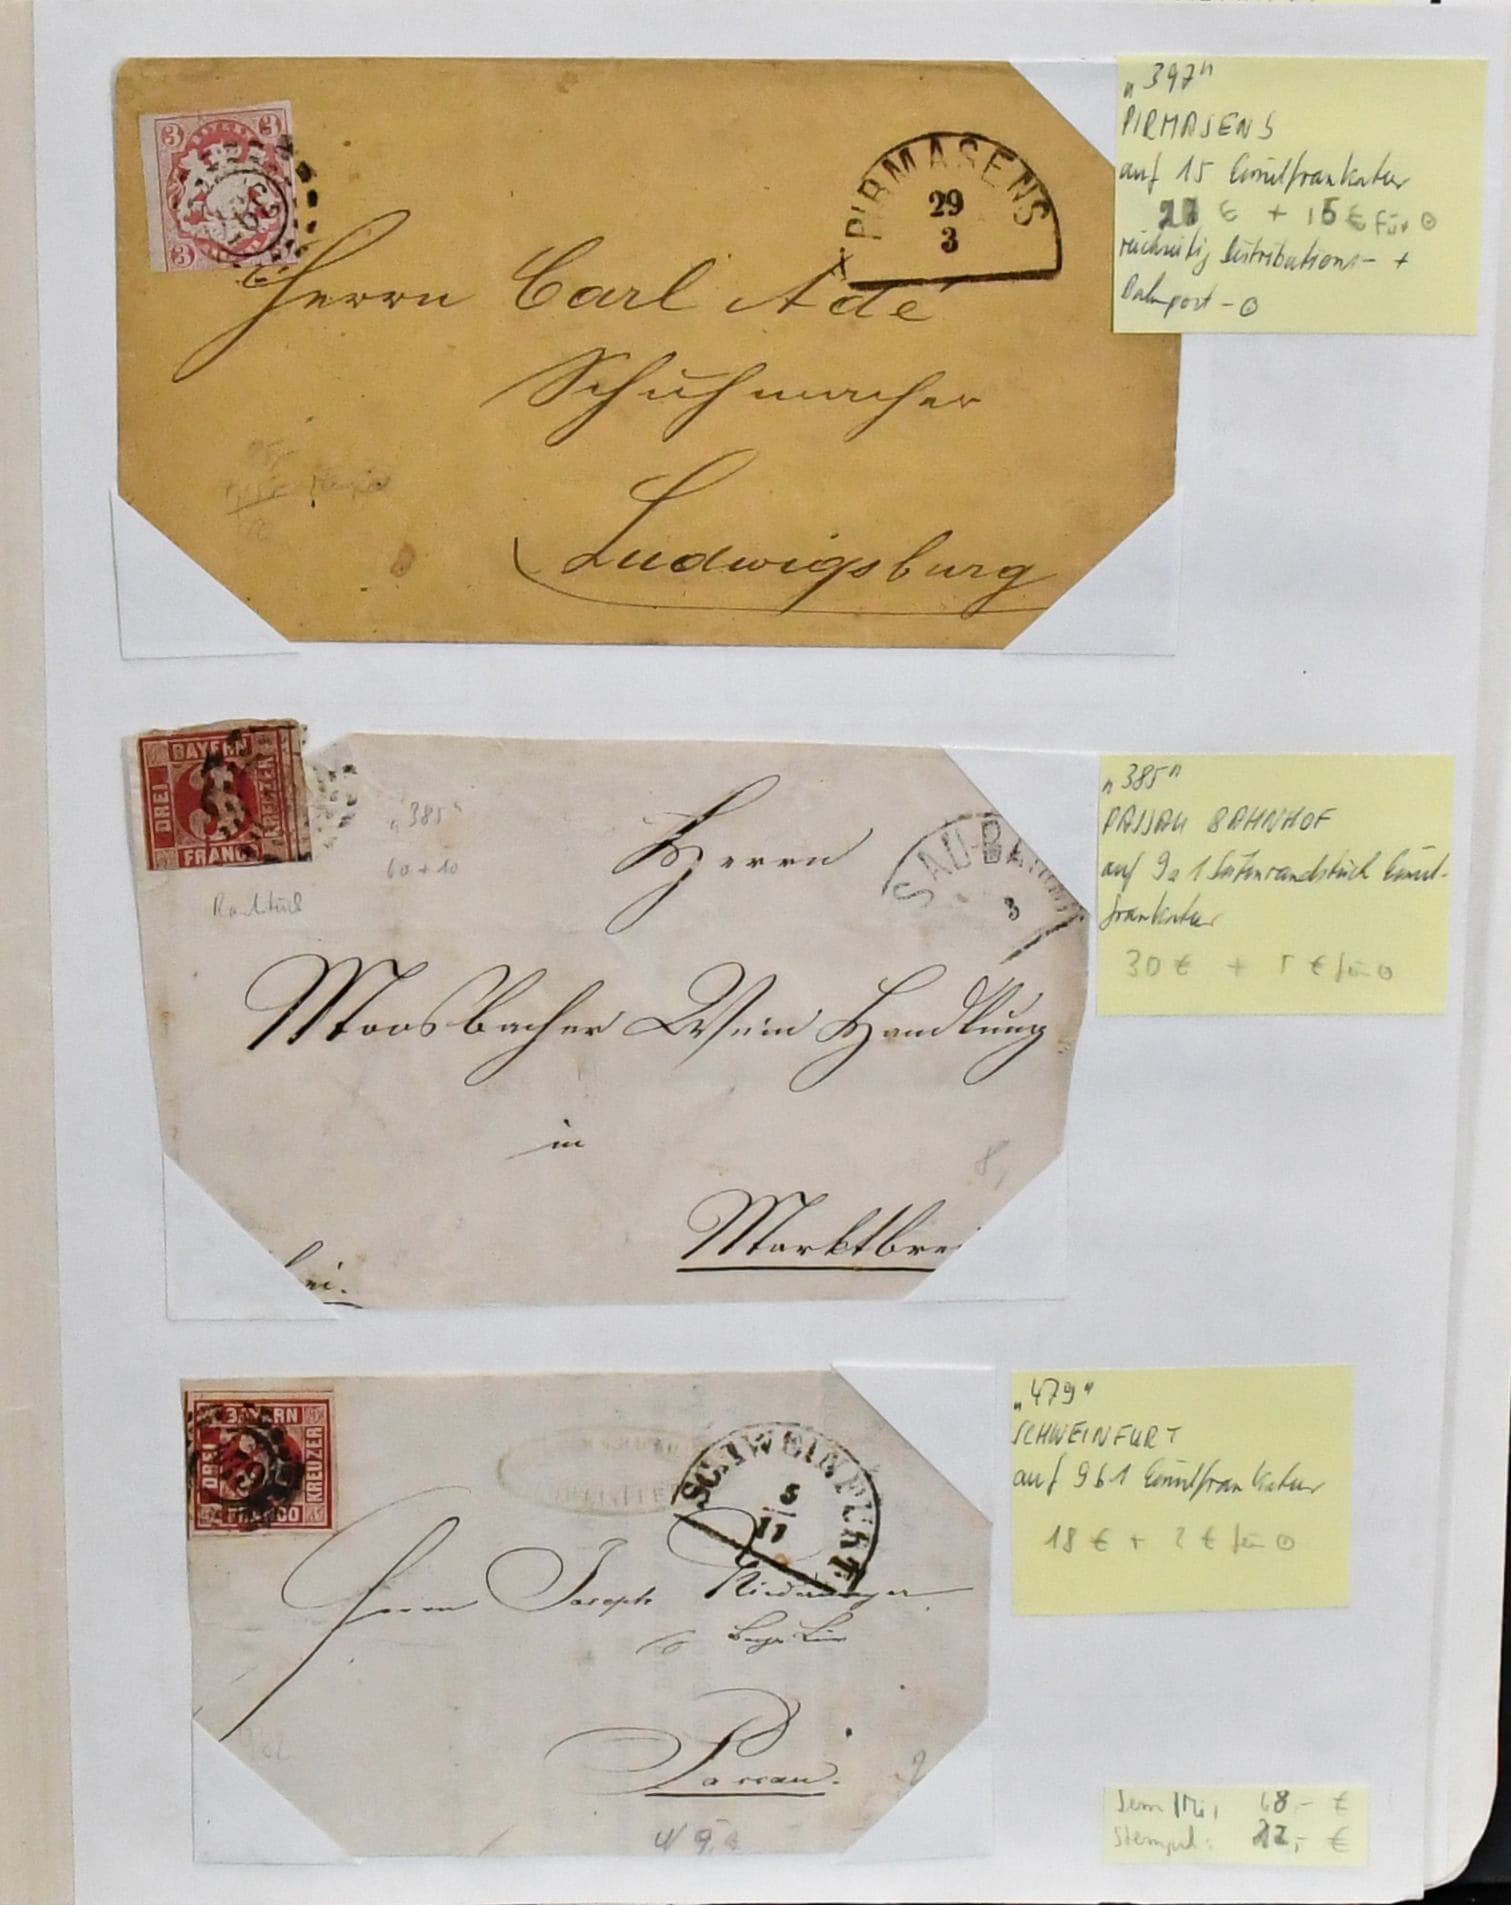 3 3
3
397
PIRMASENS
29
3
Herrn Carl Adé
Schuhmacher
Ludwigsburg
„397"
PIRMASENS
auf 15 Einzelfrankatur
€ + 15 € für
rückseitig Distributions- +
Bahnpost-
BAYERN
DREI
KREUZER
FRANCO
„385"
60 + 10
Randstück
SAU-BAHNH
3
Herrn
Moosbacher Wein Handlung
in
Marktbrei
frei.
8,
„385"
PASSAU BAHNHOF
auf 9a1 Seitenrandstück Einzel-
frankatur
30 € + 5 € für
BAYERN
DREI
KREUZER
SCHWEINFURT
5
11
Herrn Joseph
Passau.
„479"
SCHWEINFURT
auf 9b1 Einzelfrankatur
18 € + 2 € für
68,- €
Stempel: 22,- €